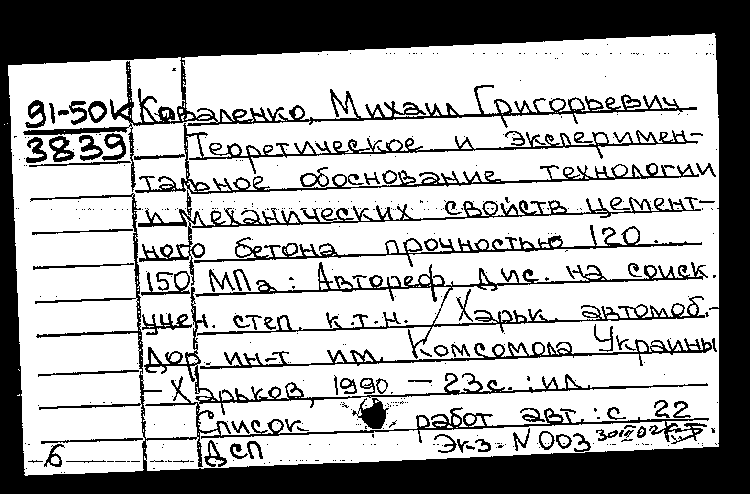 91-50К Коваленко, Михаил Григорьевич
3839 Теоретическое и эксперимен-
тальное обоснование технологии
и механических свойств цемент-
ного бетона прочностью 120...
150 МПа: Автореф. дис. на соиск.
учен. степ. к.т.н. / Харьк. автомоб.-
дор. ин-т им. Комсомола Украины
- Харьков, 1990 - 23с.: ил.
Список работ авт.: с. 22
б ДСП Экз. N 003